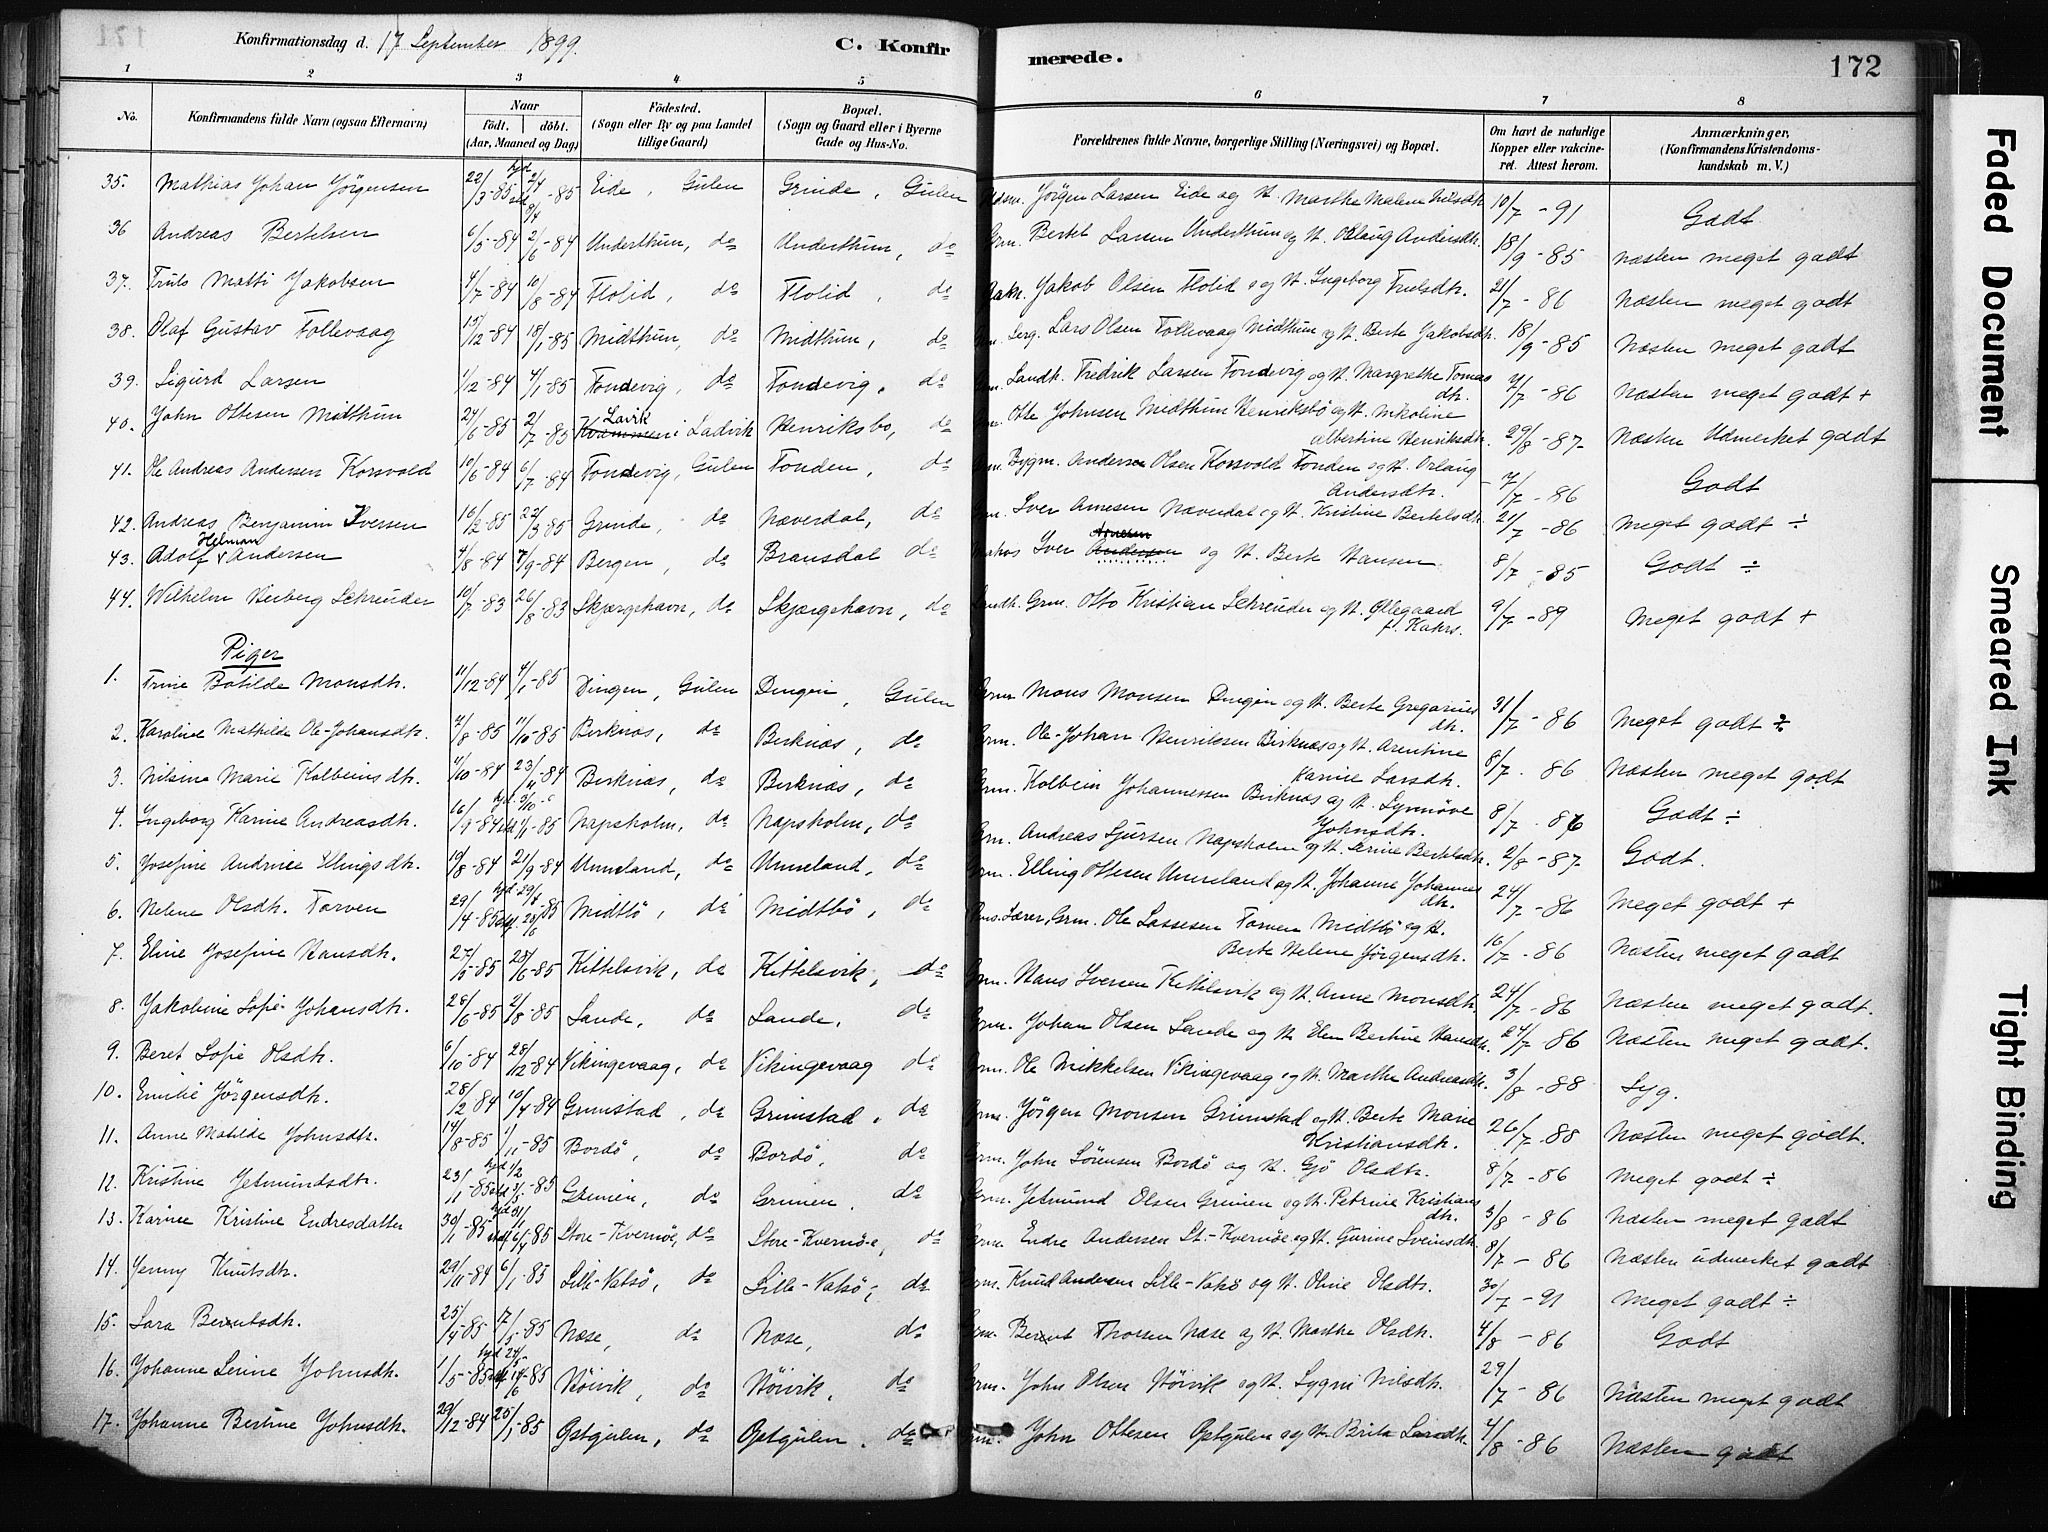 171
Konfirmationsdag d. 17 September 1899.
C. Konfirmerede.
172
1 2 3 4 5 6 7 8
No.
Konfirmandens fulde Navn (ogsaa Efternavn)
Naar
födt. döbt.
(Aar, Maaned og Dag)
Födested.
(Sogn eller By og paa Landet tillige Gaard)
Bopæl.
(Sogn og Gaard eller i Byerne Gade og Hus-No.
Forældrenes fulde Navne, borgerlige Stilling (Næringsvei) og Bopæl.
Om havt de naturlige Kopper eller vakcineret. Attest herom.
Anmærkninger,
(Konfirmandens Kristendomskundskab m. V.)
35. Mathias Johan Jörgensen 22/3-85 hjd 2/4 -85 Eide, Gulen Grinde, Gulen Jörgen Larsen Eide og H. Marthe Malene Nilsdtr 10/7-91 Godt
36 Andreas Bertelsen 6/5-84 2/6-84 Underthun, do Underthun, do Grm. Bertel Larsen Underthun og H. Orlaug Andersdtr. 18/9-85 næsten meget godt
37. Truls Matti Jakobsen 4/7-84 10/8-84 Flolid, do Flolid, do Jakob Olsen Flolid og H. Ingeborg Trulsdtr. 21/7-86 Næsten meget godt
38. Olaf Gustav Follevaag 15/12-84 18/1-85 Midthun, do Midthun, do Serg. Lars Olsen Follevaag Midthun og H. Berte Jakobsdtr. 18/9-85 Næsten meget godt
39. Sigurd Larsen 1/12-84 4/1-85 Fondevig, do Fondevig, do Landh. Fredrik Larsen Fondevig og H. Margrethe Tomasdtr. 7/7-86 Næsten meget godt +
40. John Ottesen Midthun 24/6-85 2/7-85 Lavik i Ladvik Henriksbo, do Otte Johnsen Midthun Henriksbö og H. Nikoline Albertine Henriksdtr. 29/8-87 Næsten Udmerket godt
41. Ole Andreas Andersen Korsvold 10/6-84 6/7-84 Fondevig, Gulen Fonden, do Bygm. Andersen Olsen Korsvold Fonden og H. Orlaug Andersdtr. 7/7-86 Godt
42. Andreas Benjamin Iversen 16/2-85 22/3-85 Grinde, do Næverdal, do Iver Arnesen Næverdal og H. Kristine Bertelsdtr. 21/7-86 meget godt ÷
43. Adolf Helman Andersen 4/8-84 7/9-84 Bergen, do Bransdal do Iver Andersen og H. Berte Hansen 8/7-85 Godt ÷
44. Wilhelm Herberg Schreuder 10/7-83 26/8-83 Skjærgehavn, do Skjærgehavn, do Landh. Grm. Otto Kristian Schreuder og H. Ollegaard f. Kahrs. 9/7-89 Meget godt +
Piger
1. Trine Botilde Monsdtr. 11/12-84 4/1-85 Dingen, Gulen Dingen, Gulen Mons Monsen Dingen og H. Berte Gregoriusdtr. 31/7-86 Meget godt ÷
2. Karoline Mathilde Ole-Johansdtr. 7/8-85 11/10-85 Birknæs, do Birknæs, do Grm. Ole-Johan Henriksen Birknæs og H. Arentine Karine Larsdtr. 8/7-86 Næsten meget godt
3. Nilsine Marie Kolbeinsdtr. 4/10-84 23/11-84 Birknæs, do Birknæs, do Grm. Kolbein Johannessen Birknæs og H. Synnöve Johnsdtr. 8/7-86 Godt ÷
4. Ingeborg Karine Andreasdtr. 16/9-84 1/1-85 Napsholm, do Napsholm, do Grm. Andreas Sjursen Napsholm og H. Serine Bertelsdtr. 2/8-87 Godt.
5. Josefine Andrine Ellingsdtr. 19/8-84 21/9-84 Unneland, do Unneland, do Grm. Elling Ottesen Unneland og H. Johanne Johannesdtr. 24/7-86 Meget godt +
6. Helene Olsdtr. Torven 29/4-85 Midtbö, do Midtbö, do Lærer, Grm. Ole Lassesen Torven Midtbö og H. Berte Helene Jörgensdtr. 16/7-86 Næsten meget godt
7. Eline Josefine Hansdtr. 27/5-85 25/6-85 Kittelsvik, do Kittelsvik, do Grm. Hans Iversen Kittelsvik og H. Anne Monsdtr. 24/7-86 Næsten meget godt.
8. Jakobine Sofie Johansdtr. 28/6-85 2/8-85 Sande, do Sande, do Grm. Johan Olsen Sande og H. Elen Bertine Hansdtr. 24/7-86 Næsten meget godt.
9. Beret Sofie Olsdtr. 6/10-84 28/12-84 Vikingevaag, do Vikingevaag do Grm. Ole Mikkelsen Vikingevaag og H. Marthe Andreasdtr. 3/8-88 Syg.
10. Emilie Jörgensdtr. 28/2-84 10/4-84 Grimstad, do Grimstad, do Grm. Jörgen Monsen Grimstad og H. Berte Marie Kristiansdtr. 26/7-88 Næsten meget godt.
11. Anne Matilde Johnsdtr. 14/8-85 1/11-85 Bordö, do Bordö, do Grm. John Sörensen Bordö og H. Gjö Olsdtr. 8/7-86 Meget godt ÷
12. Kristine Jetmundsdtr. 23/11-85 Grinien, do Grinien, do Grm. Jetmund Olsen Grinien og H. Petrine Kristiansdtr. 3/8-86 Næsten meget godt
13. Karine Kristine Endresdatter 30/1-85 6/4-85 Store-Kvernöe, do Store-Kvernöe, do Grm. Endre Andersen St.-Kvernöe og H. Gurine Sveinsdtr. 8/7-86 Næsten udmerket godt
14. Jenny Knutsdtr. 29/11-84 6/1-85 Lille-Vatsö, do Lille-Vatsö, do Grm. Knud Andersen Lille-Vatsö og H. Oline Olsdtr. 30/7-91 Meget godt ÷
15. Sara Berentsdtr. 25/4-85 17/5-85 Næse, do Næse, do Grm. Berent Thorsen Næse og H. Marthe Olsdtr. 4/8-86 Godt
16. Johanne Serine Johnsdtr. 1/5-85 hjd 24/5 14/6-85 Höivik, do Höivik, do Grm. John Olsen Höivik og H. Sygni Nilsdtr. 29/7-86 Næsten meget godt
17. Johanne Bertine Johnsdtr. 29/12-84 25/1-85 Östgulen, do Östgulen, do Grm. John Ottesen Östgulen og H. Brita Larsdtr. 4/8-86 Næsten godt
Faded Document
Smeared Ink
Tight Binding